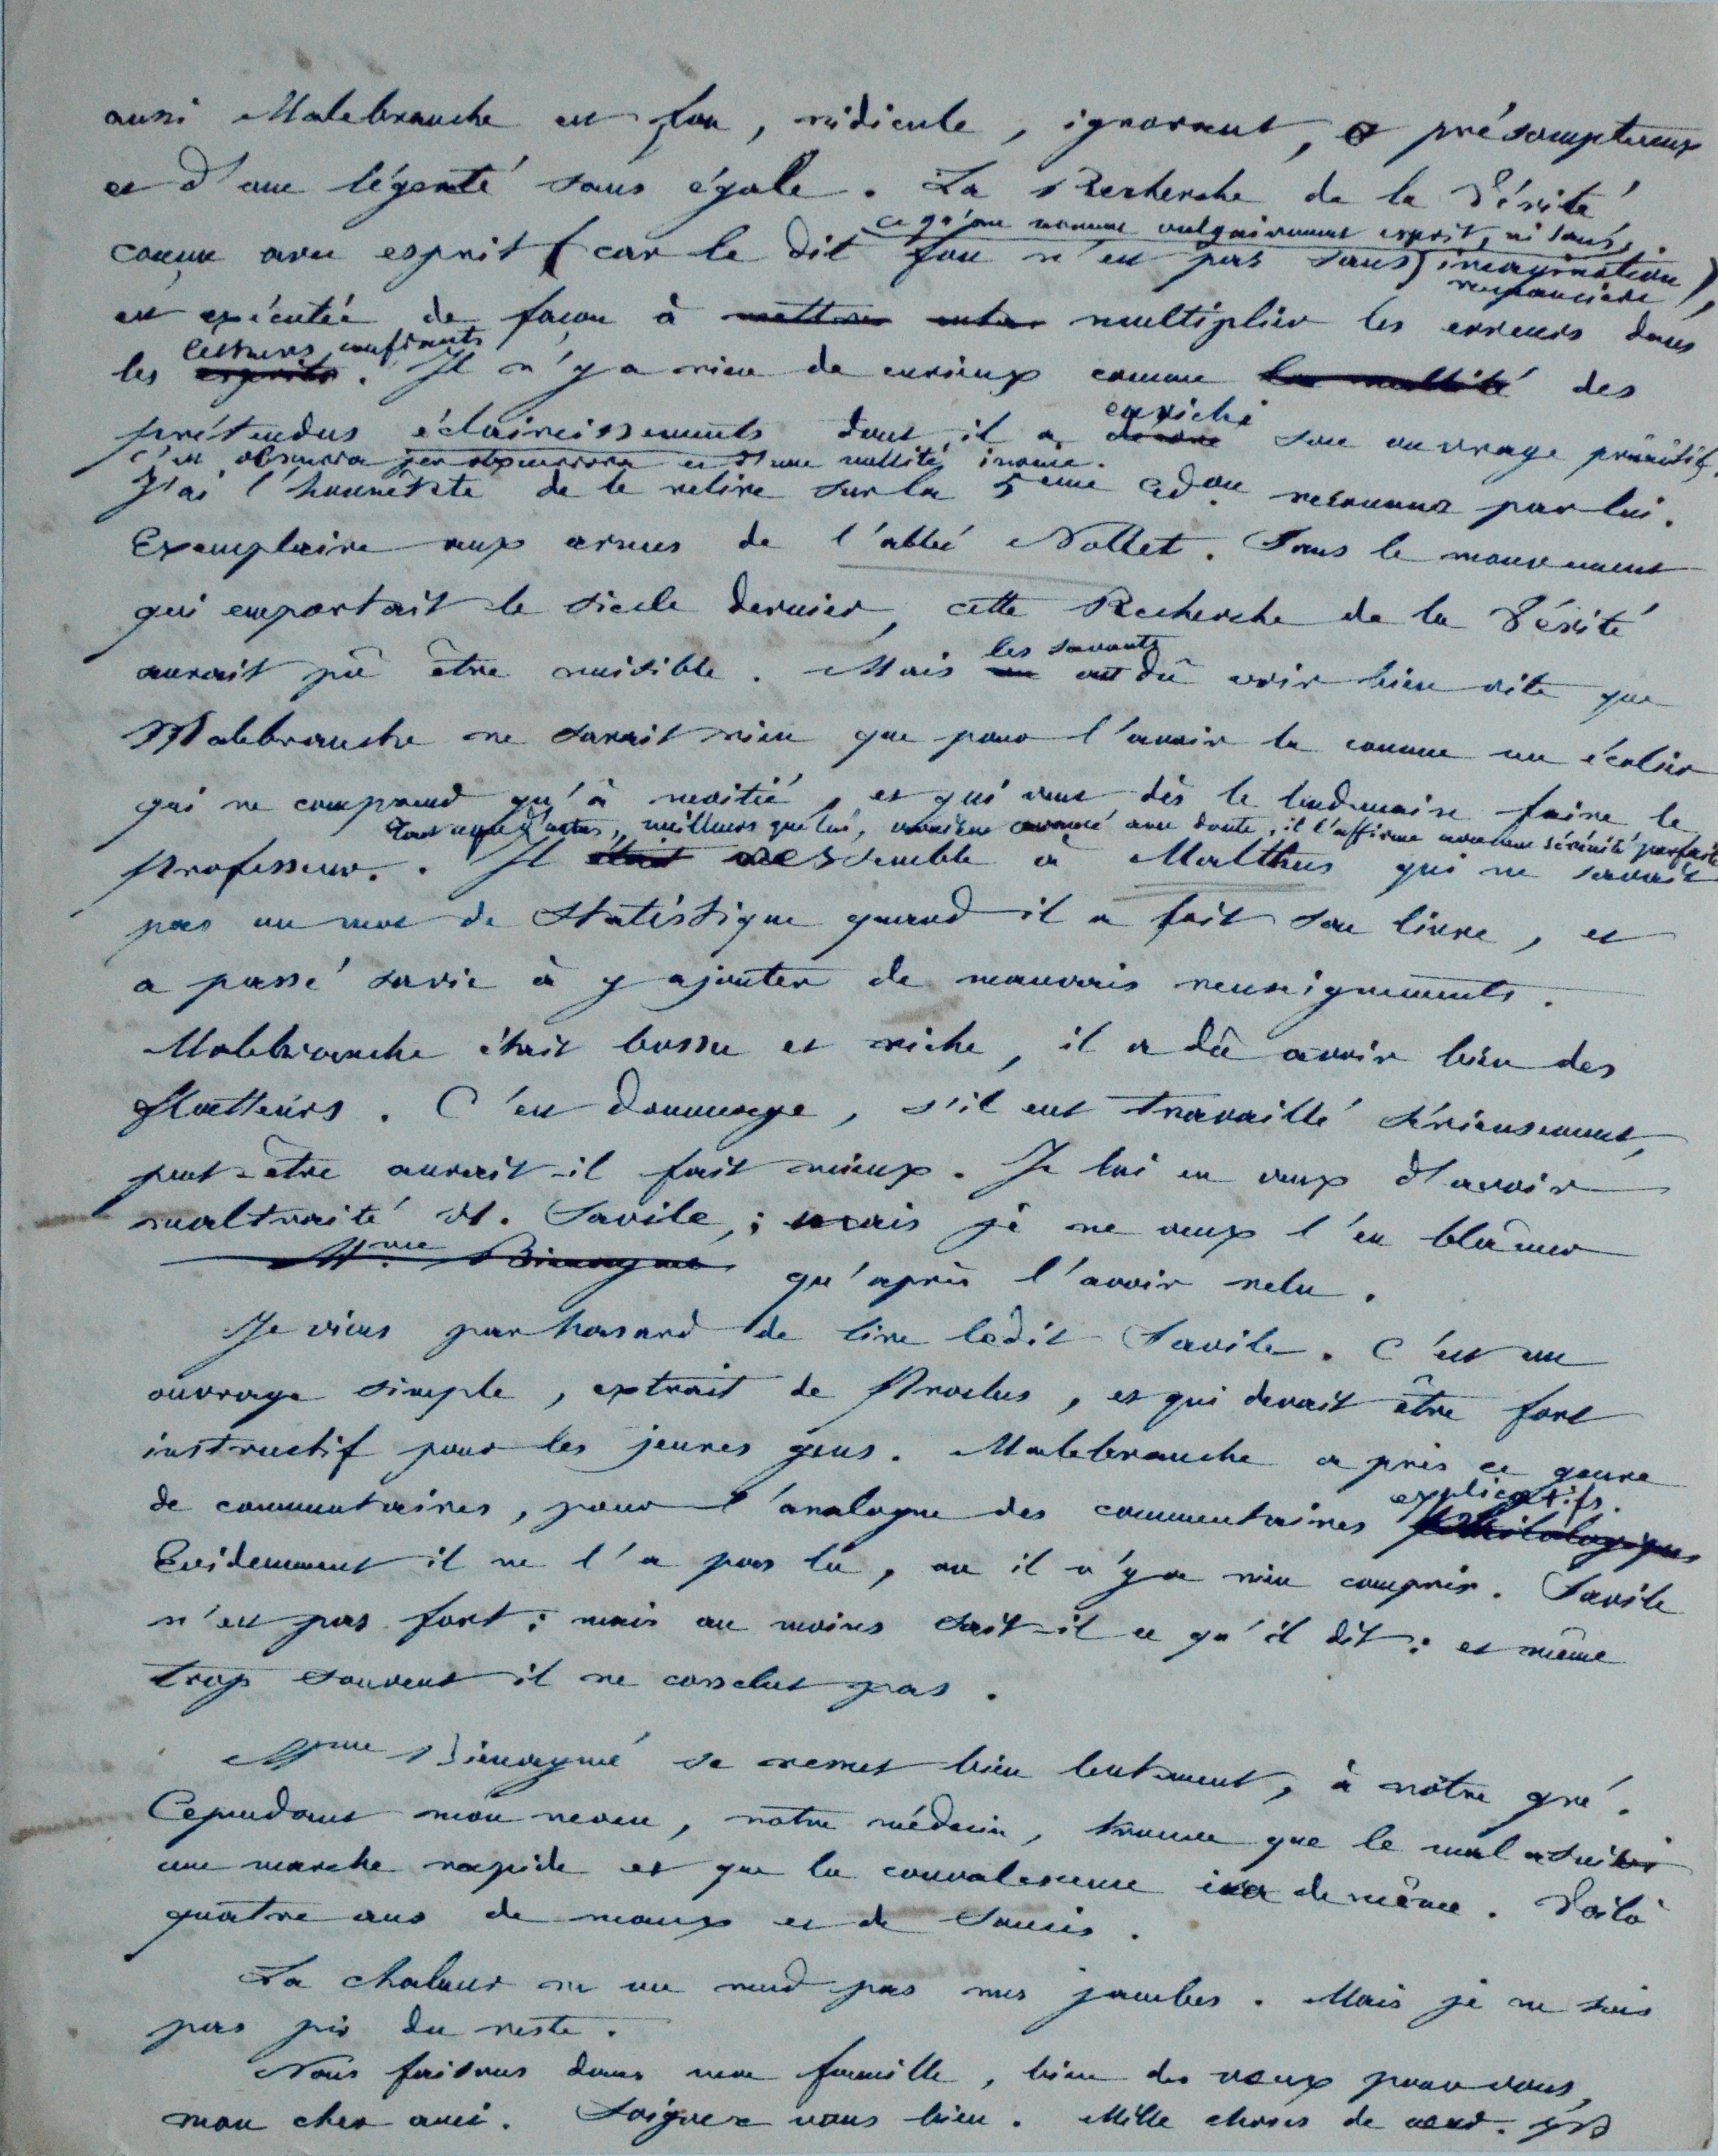 aussi Malebranche est fou, ridicule, ignorant, présomptueux
et d'une légereté sans égale. La Recherche de la Vérité
ce qu'on nomme vulgairement esprit, ni sans
conçue avec esprit (car le dit fou n'est pas sans imagination
romancière),
est exécutée de façon à mettre multiplier les erreurs dans
lecteurs confiants
les esprits. Il n'y a rien de curieux comme la nullité des
enrichi
prétendus éclaircissements dont il a décoré son ouvrage primitif,
c'est obscurcissements et d'une nullité inouie.
J'ai l'honnêteté de le relire sur la 5eme Edon reconnue par lui.
Exemplaire aux armes de l'abbé Nollet. Sans le mouvement
qui emportait le siecle dernier, cette Recherche de la Vérité
les savants
aurait pû être nuisible. Mais on ont dû voir bien vite que
Malebranche ne savait rien que pour l'avoir lu comme un écolier
qui ne comprend qu'à moitié, et qui veut dès le lendemain faire le
d'autres, meilleurs que lui, avancé avec doute, il l'affirme avec une sérénité parfaite
Professeur. Il était ressemble à Malthus qui ne savait
pas un mot de Statistique quand il a fait son livre, et
a passé sa vie à y ajouter de mauvais renseignements.
Malebranche était bossu et riche, il a dû avoir bien des
flatteurs. C'est dommage, s'il eut travaillé sérieusement,
peut-être aurait-il fait mieux. Je lui en veux d'avoir
maltraité H. Savile; mais je ne veux l'en blâmer
Mme Bienaymé qu'après l'avoir relu.
Je viens par hasard de lire ledit Savile. C'est un
ouvrage simple, extrait de Proclus, et qui devait être fort
instructif pour les jeunes gens. Malebranche a pris ce genre
explicatifs.
de commentaires, pour l'analogue des commentaires philologiques
Evidemment il ne l'a pas lu, ou il n'y a rien compris. Savile
n'est pas fort; mais au moins sait-il ce qu'il dit: et même
trop souvent il ne conclut pas.
Mme Bienaymé se remet bien lentement, à nôtre gré.
Cependant mon neveu, notre médecin, trouve que le mal a suivi
une marche rapide et que la convalescence ira de même. Voilà
quatre ans de maux et de soucis.
La chaleur ne me rend pas mes jambes. Mais je ne suis
pas pis du reste.
Nous faisons dans ma famille, bien des vœux pour vous,
mon cher ami. Soignez vous bien. Mille choses de cœur. JB